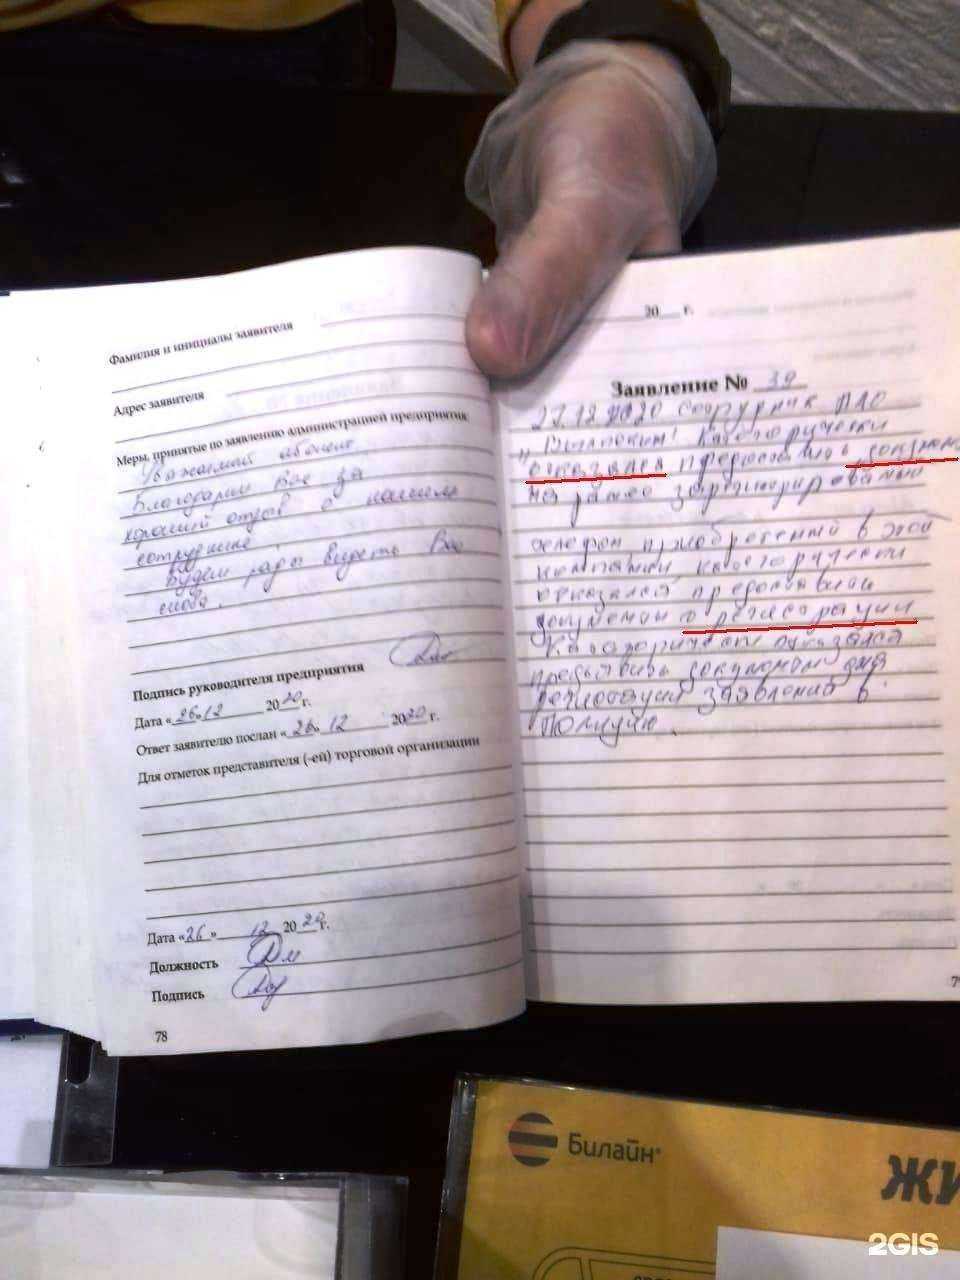 Фамилия и инициалы заявителя
Адрес заявителя
Меры, принятые по заявлению администрацией предприятия
Уважаемый абонент.
Благодарим Вас за
хороший отзыв о нашем
сотруднике
Будем рады видеть Вас
снова.
Подпись руководителя предприятия
Дата «26» 12 2020 г.
Ответ заявителю послан «26» 12 2020 г.
Для отметок представителя (-ей) торговой организации
Дата «26» 12 2020 г.
Должность
Подпись
78
20 г.
Заявление № 39
27.12.2020 сотрудник ПАО
"Вымпелком" категорически
отказался предоставить
на ранее зарегистрированный
телефон приобретенный в этой
компании, категорически
отказался предоставить
документ о регистрации
Категорически отказался
заявлений в
Билайн
ЖИ
2GIS